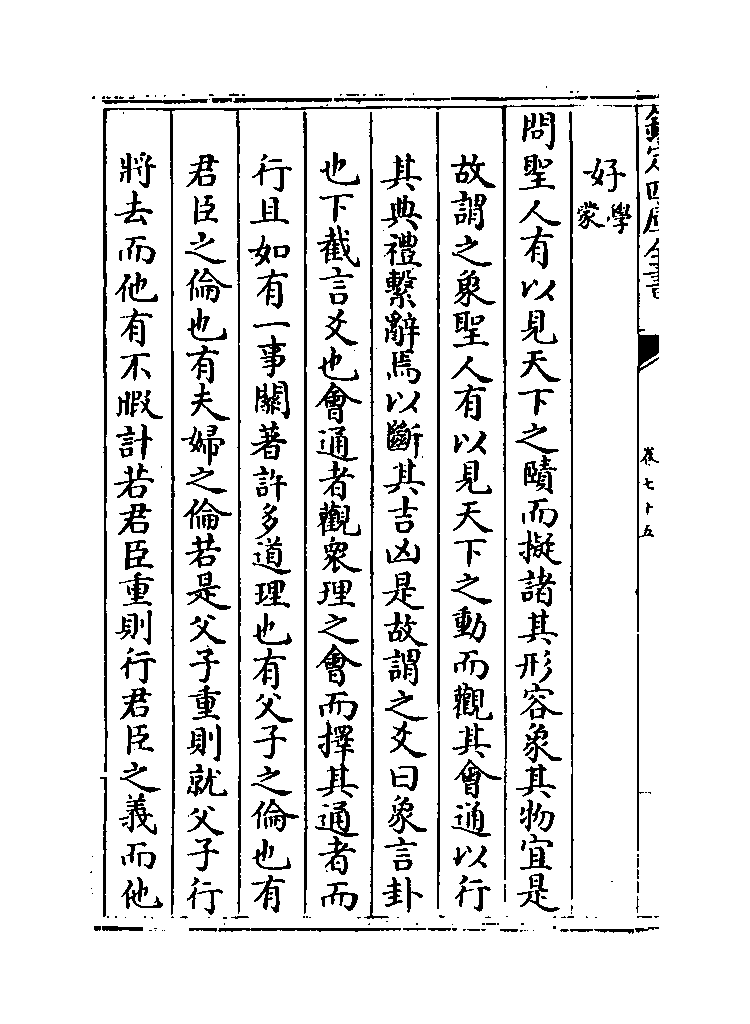 欽定四庫全書
卷七十五
好學蒙
問聖人有以見天下之賾而擬諸其形容象其物宜是
故謂之象聖人有以見天下之動而觀其會通以行
其典禮繫辭焉以斷其吉凶是故謂之爻曰象言卦
也下截言爻也會通者觀衆理之會而擇其通者而
行且如有一事關著許多道理也有父子之倫也有
君臣之倫也有夫婦之倫若是父子重則就父子行
將去而他有不暇計若君臣重則行君臣之義而他